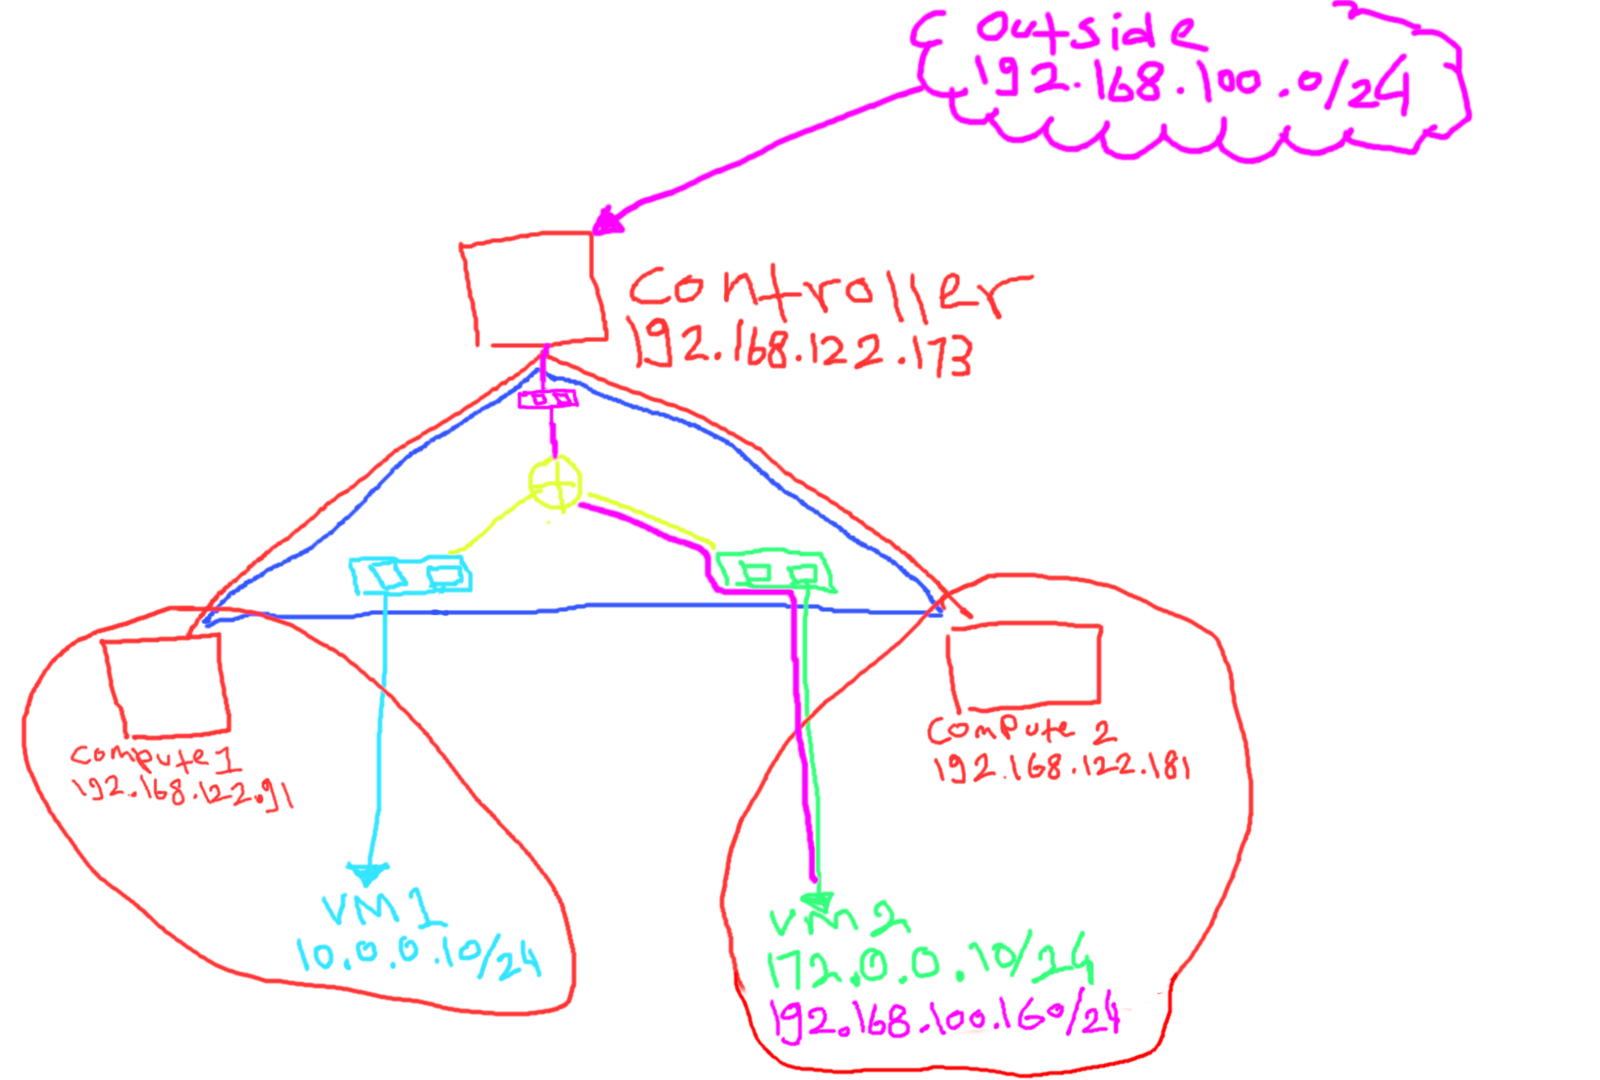 outside
192.168.100.0/24
controller
192.168.122.173
compute 1
192.168.122.91
compute 2
192.168.122.181
VM1
10.0.0.10/24
VM2
172.0.0.10/24
192.168.100.160/24